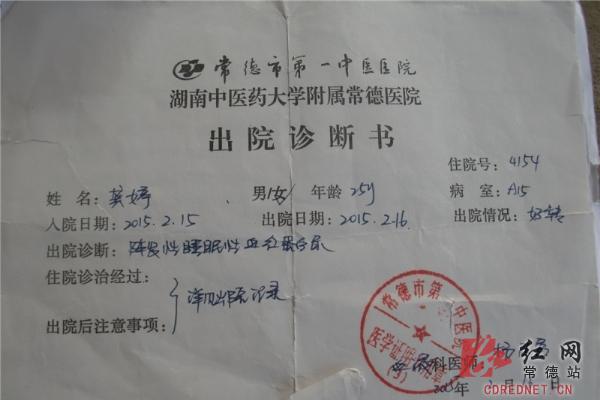 常德市第一中医医院
湖南中医药大学附属常德医院
出院诊断书
住院号：4154
姓名：龚婷 男/女/ 年龄 25y 病室：A15
入院日期：2015.2.15 出院日期：2015.2.16 出院情况：好转
出院诊断：阵发性睡眠性血红蛋白尿
住院诊治经过：
详见出院记录
出院后注意事项：
常德市第一中医医院
医学证明专用章
科医师：
年 月 日
红网
常德站
CDREDNET.CN